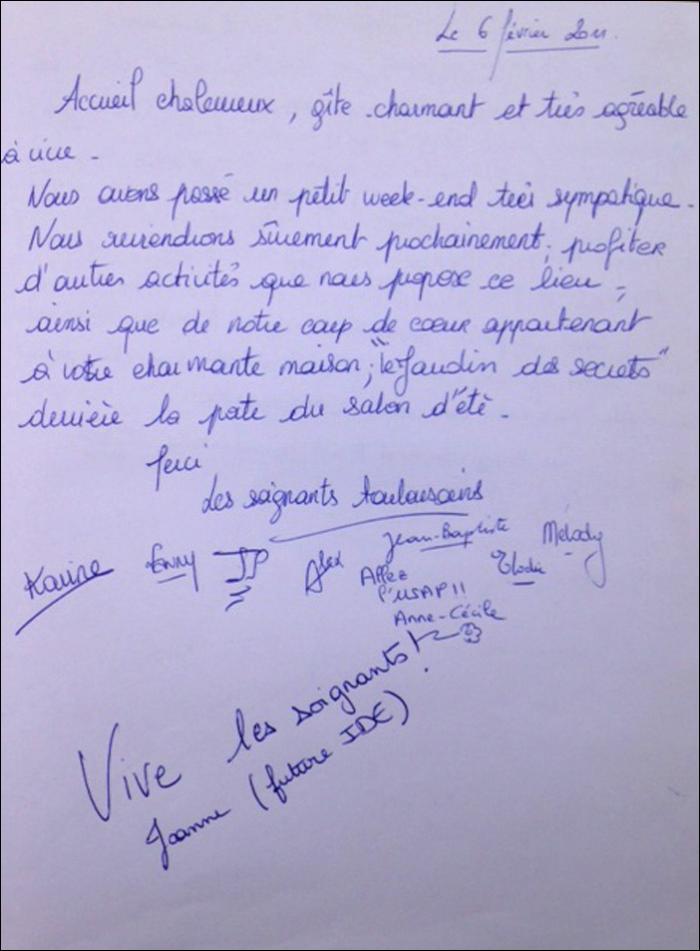 Le 6 février 2011.
Accueil chaleureux, gîte charmant et très agréable
à vivre.
Nous avons passé un petit week-end très sympatique.
Nous reviendrons sûrement prochainement, profiter
d'autres activités que nous propose ce lieu,
ainsi que de notre coup de coeur appartenant
à votre charmante maison; "le Jardin des secrets"
derrière la porte du salon d'été.
Merci
Les soignants toulousains
Karine Fanny JP Alex Jean-Baptiste Elodie Mélody
Allez
l'USAP!!
Anne-Cécile
Vive les soignants!
Joanne (future IDE)